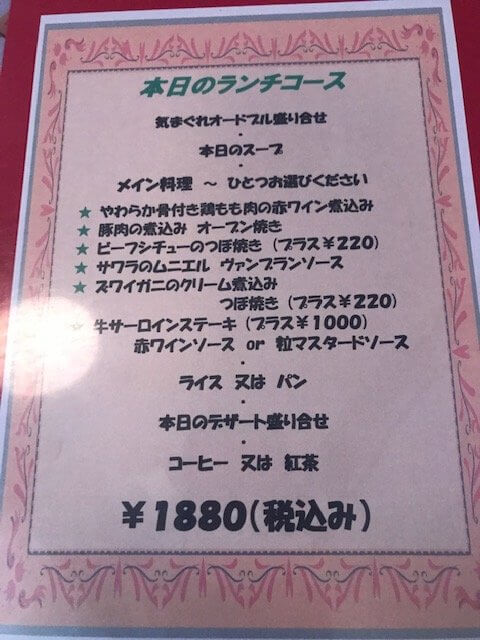 本日のランチコース
気まぐれオードブル盛り合せ
・
本日のスープ
・
メイン料理 ～ ひとつお選びください
★ やわらか骨付き鶏もも肉の赤ワイン煮込み
★ 豚肉の煮込み オーブン焼き
★ ビーフシチューのつぼ焼き (プラス¥220)
★ サワラのムニエル ヴァンブランソース
★ ズワイガニのクリーム煮込み
つぼ焼き (プラス¥220)
☆ 牛サーロインステーキ (プラス¥1000)
赤ワインソース or 粒マスタードソース
・
ライス 又は パン
・
本日のデザート盛り合せ
・
コーヒー 又は 紅茶
¥1880(税込み)